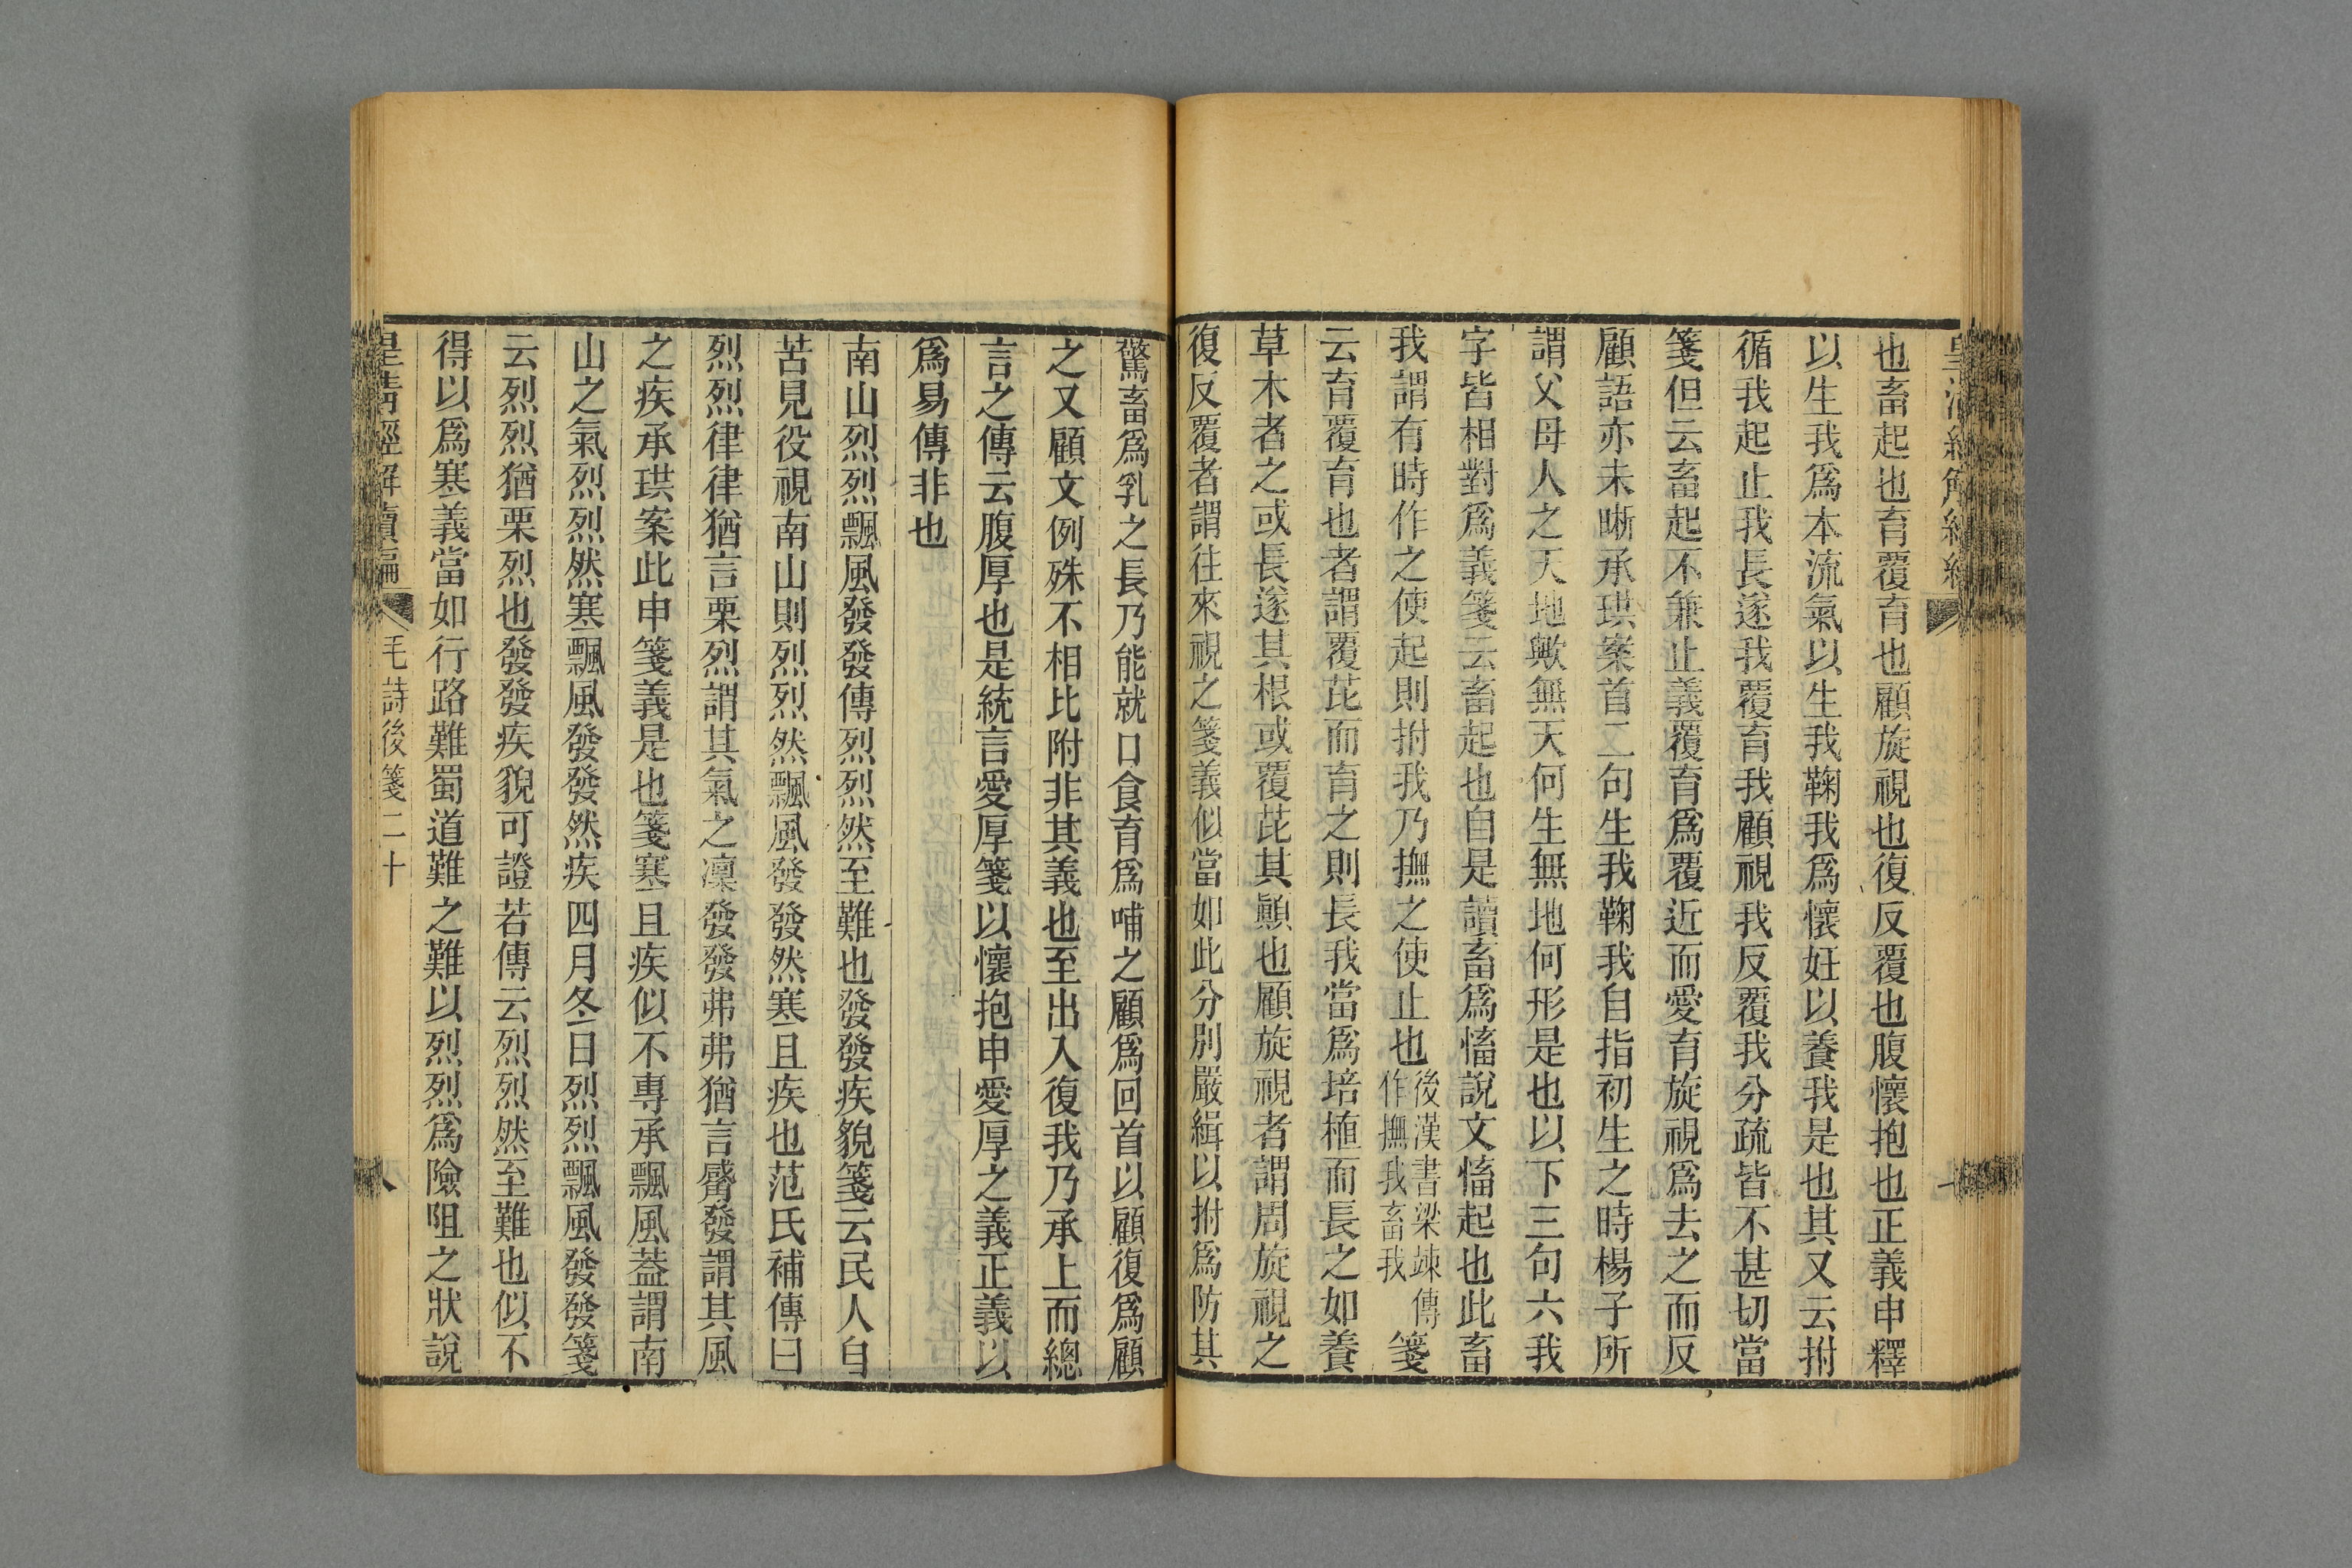 也畜起也育覆育也顧旋視也復反覆也腹懷抱也正義申釋
以生我爲本流氣以生我鞠我爲懷妊以養我是也其又云拊
循我起止我長遂我覆育我顧視我反覆我分疏皆不甚切當
箋但云畜起不兼止義覆育爲覆近而愛育旋視爲去之而反
顧語亦未晰承珙案首二句生我鞠我自指初生之時楊子所
謂父母人之天地歟無天何生無地何形是也以下三句六我
字皆相對爲義箋云畜起也自是讀畜爲慉說文慉起也此畜
我謂有時作之使起則拊我乃撫之使止也後漢書梁竦傳作撫我畜我箋
云育覆育也者謂覆芘而育之則長我當爲培植而長之如養
草木者之或長遂其根或覆芘其顚也顧旋視者謂周旋視之
復反覆者謂往來視之箋義似當如此分別嚴緝以拊爲防其
驚畜爲乳之長乃能就口食育爲哺之顧爲回首以顧復爲顧
之又顧文例殊不相比附非其義也至出入復我乃承上而總
言之傳云腹厚也是統言愛厚箋以懷抱申愛厚之義正義以
爲易傳非也
南山烈烈飄風發發傳烈烈然至難也發發疾貌箋云民人自
苦見役視南山則烈烈然飄風發發然寒且疾也范氏補傳曰
烈烈律律猶言栗烈謂其氣之凜發發弗弗猶言觱發謂其風
之疾承珙案此申箋義是也箋寒且疾似不專承飄風葢謂南
山之氣烈烈然寒飄風發發然疾四月冬日烈烈飄風發發箋
云烈烈猶栗烈也發發疾貌可證若傳云烈烈然至難也似不
得以爲寒義當如行路難蜀道難之難以烈烈爲險阻之狀說
皇清經解續編
毛詩後箋二十
八